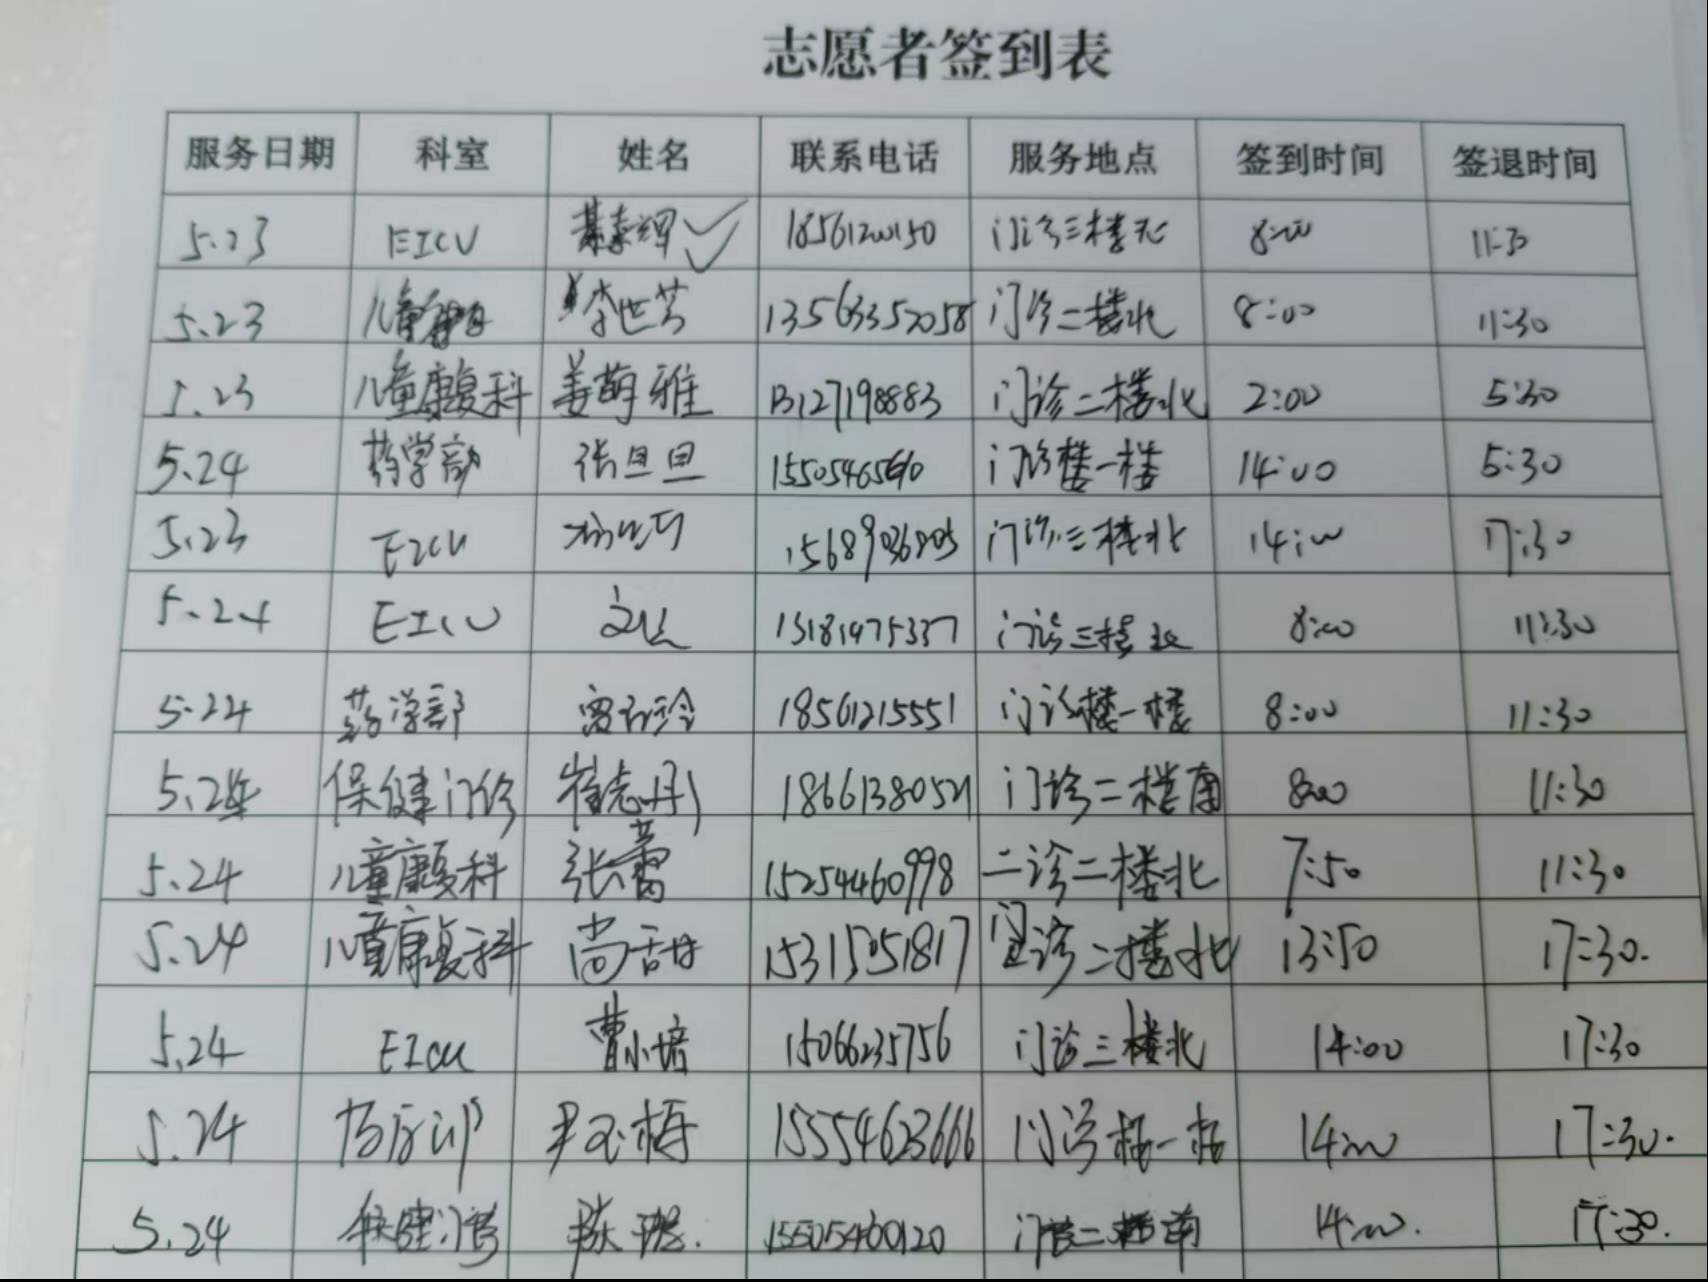 志愿者签到表
服务日期 科室 姓名 联系电话 服务地点 签到时间 签退时间
5.23 EICU 綦素辉 18561200150 门诊三楼北 8:00 11:30
5.23 儿童 李世芳 13563352058 门诊二楼北 8:00 11:30
5.23 儿童康复科 姜萌雅 13127198883 门诊二楼北 2:00 5:30
5.24 药学部 张旦旦 门诊楼一楼 14:00 5:30
5.23 EICU 门诊三楼北 14:00 17:30
5.24 EICU 13181975337 门诊三楼北 8:00 11:30
5.24 药学部 18561215551 门诊楼一楼 8:00 11:30
5.24 保健门诊 崔志彤 18661380521 门诊二楼南 8:00 11:30
5.24 儿童康复科 张蕾 15254460998 二诊二楼北 7:50 11:30
5.24 儿童康复科 尚甜 15315051817 门诊二楼北 13:50 17:30.
5.24 EICU 曹小培 15066235756 门诊三楼北 14:00 17:30
5.24 尹玉梅 15554623666 门诊楼一楼 14:00 17:30.
5.24 保健门诊 15505460120 门诊二楼南 14:00. 17:30.